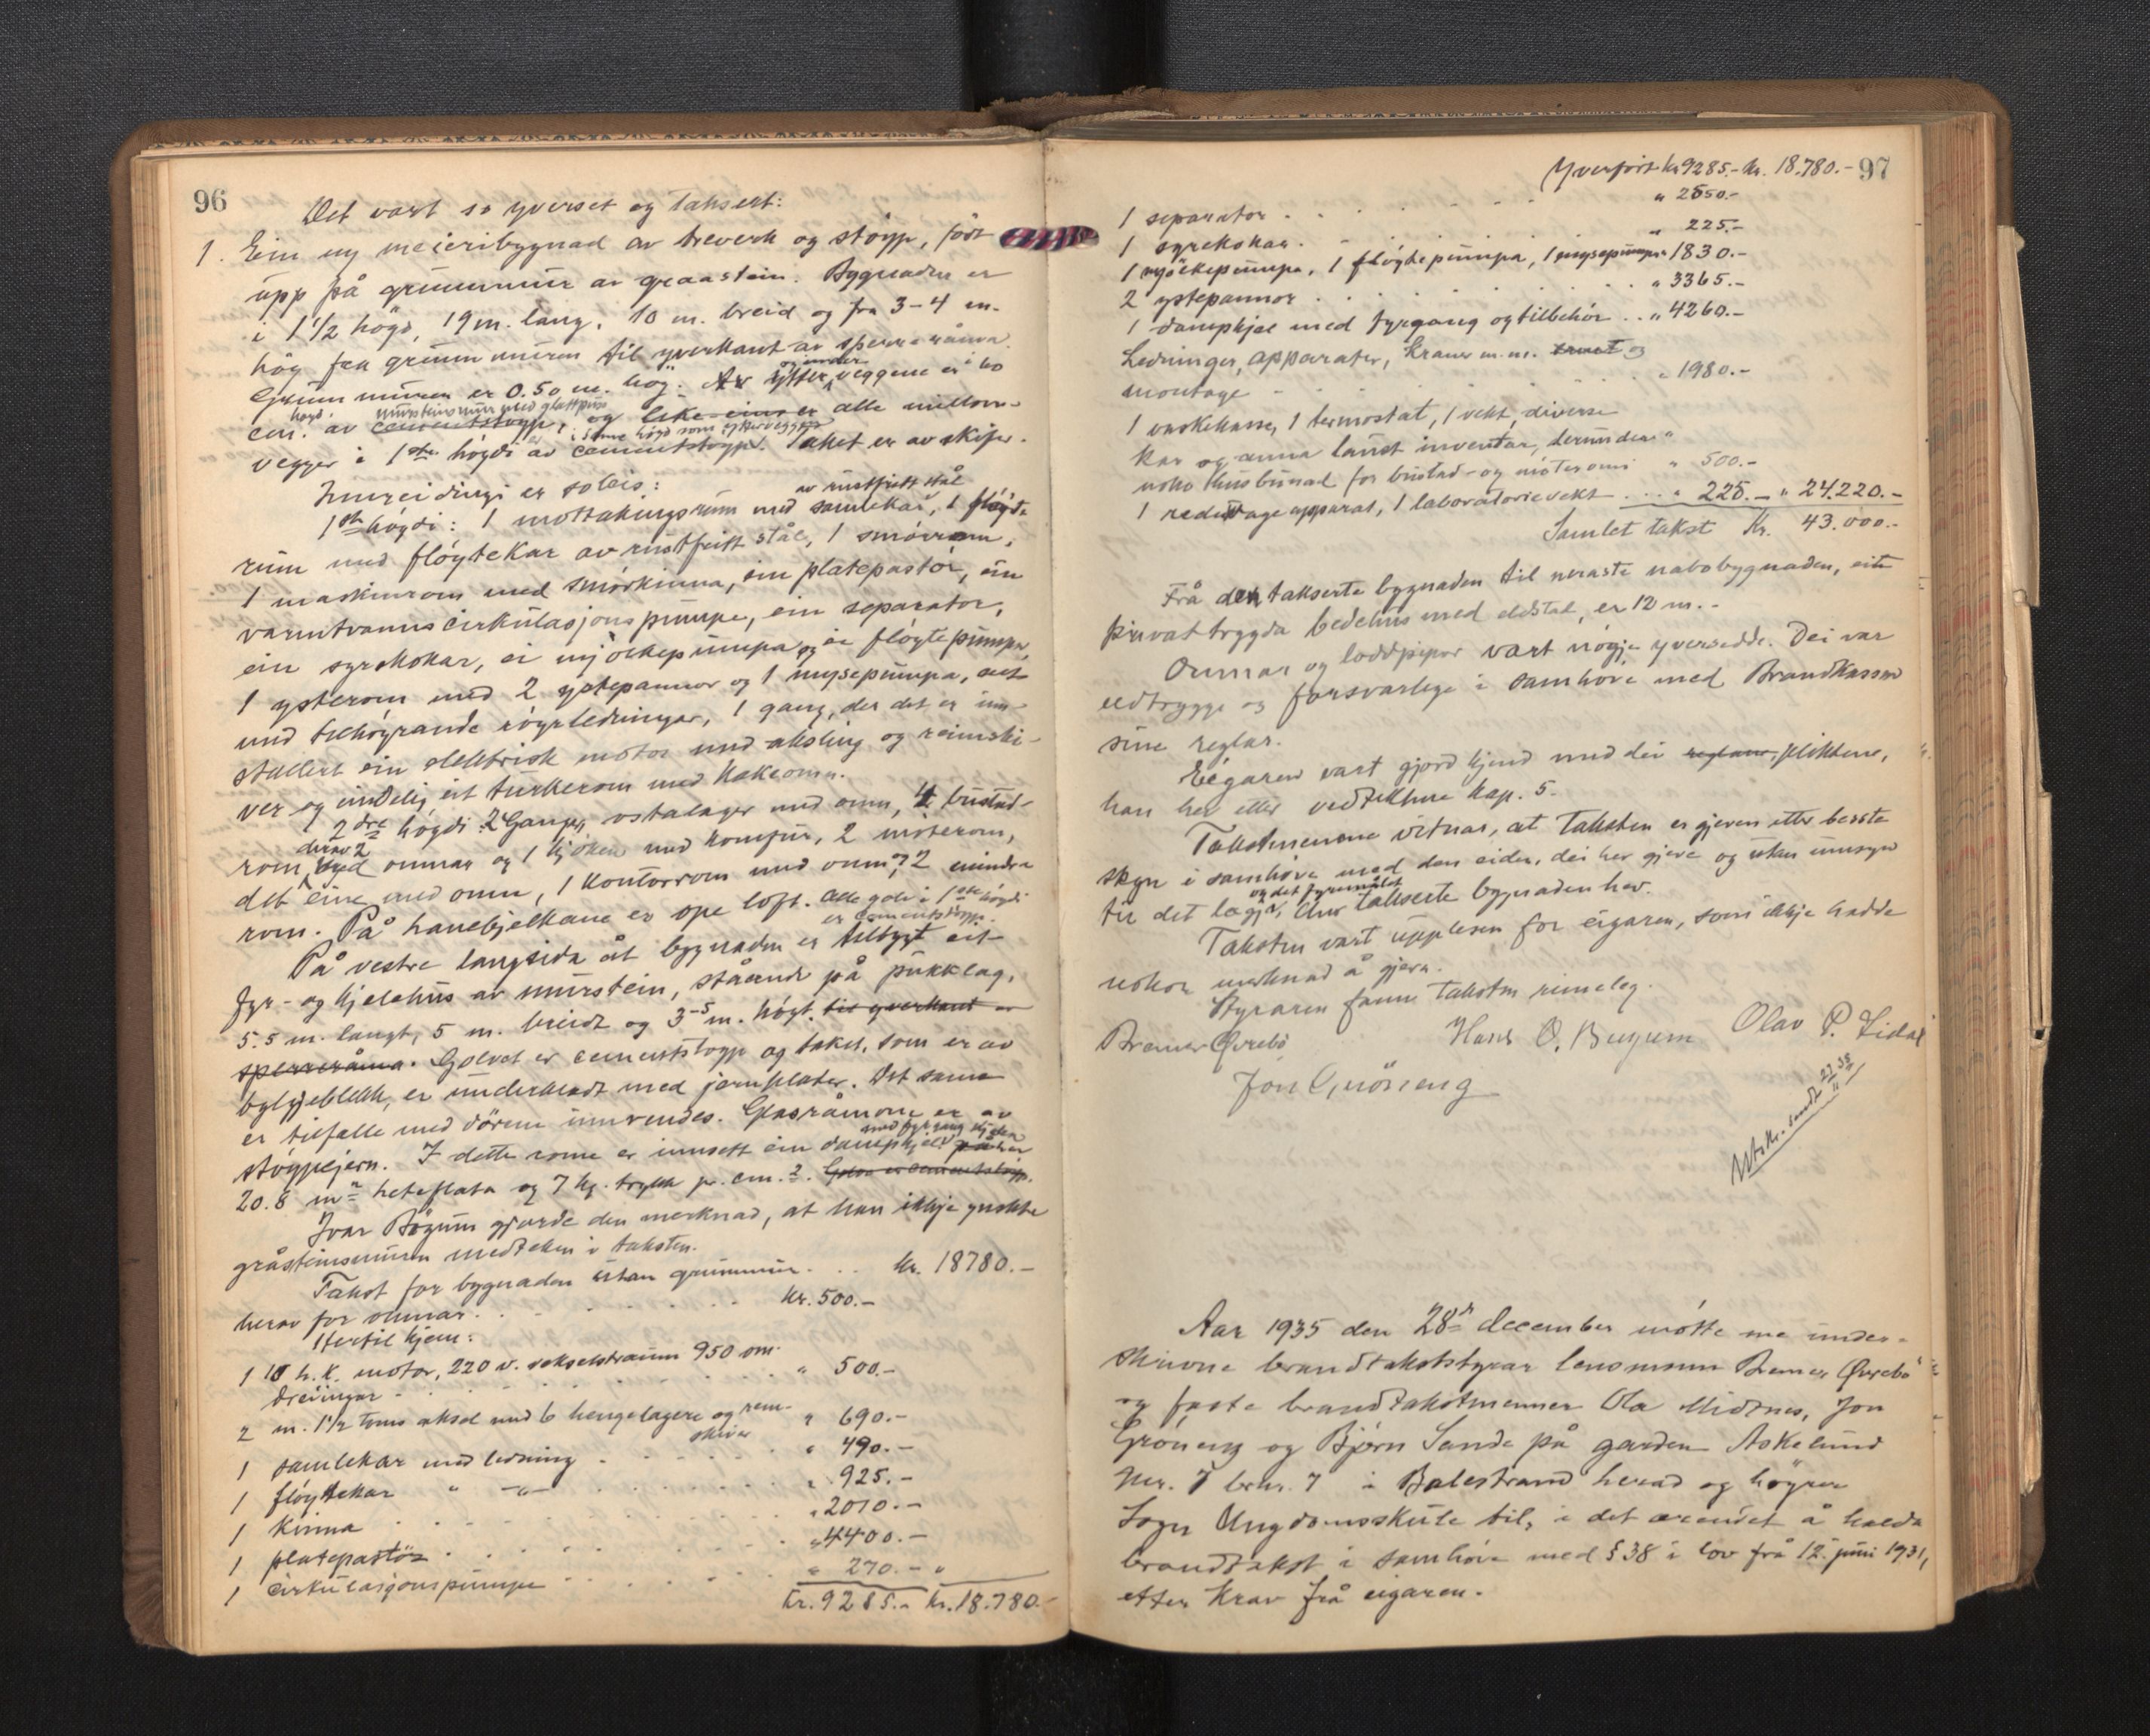 96
Det vart so yverset og taksert:
1. Ein ny meieribygnad av treverk og støyp, ført
upp på grunnmur av graastein. Bygnaden er
i 1 1/2 högd, 19 m. lang, 10 m. breid og fra 3-4 m.
høg fra grunnmuren til yverkant av sperreråma.
Grunnmuren er 0.50 m. høg. Av ytter og under veggene er i 60
cm. høgd av cementstøypt mursteinsmur med glattpuss, og like eins er alle millom-
vegger i 1ste høgdi er i same høgd som ytterveggene av cementstøypt. Taket er av skifer.
Innreidingi er soleis:
1ste høgdi: 1 mottakingsrum med samlekar av rustfritt stål, 1 fløyte
rum med fløytekar av rustfritt stål, 1 smörrom,
1 maskinrom med smörkinna, ein platepastör, ein
varmtvannscirkulasjonspumpe, ein separator,
ein syrekokar, ei mjölkepumpa og ei fløytepumpa,
1 ysterom med 2 ystepannor og 1 mysepumpa, alt
med tilhøyrande røyrledningar, 1 gang, der det er inn-
stallert ein elektrisk motor med aksling og reimski-
ver og endeleg eit turkerom med kakeomn.
2dre høgdi: 2 Ganger, ostalager med omn, 4 bustad-
rom, derav 2 med omnar og 1 kjøken med komfur, 2 møterom,
det eine med omn, 1 kontorrom med omn og 2 mindre
rom. På hanebjelkane er ope loft. Alle golv i 1ste høgdi
er cementstøypt.
På vestre langsida åt bygnaden er tilbygt eit
fyr- og kjelehus av murstein, ståande på pukklag,
5.5 m. langt, 5 m. breidt og 3-5 m. høgt til yverkant av
sperreråma. Golvet er cementstøypt og taket, som er av
bylgjeblekk, er underkledt med jernplater. Det same
er tilfelle med dörene innvendes. Glasråmone er av
støypejern. I dette rome er innsett ein dampkjel med fyrgang kjelen på har
20.8 m² heteflata og 7 kg. trykk pr. cm.². Golva er cementstøypt.
Ivar Bøyum gjorde den merknad, at han ikkje ynskte
gråsteinsmuren medteken i taksten.
Takst for bygnaden utan grunnmur . . . kr. 18780.-
herav for omnar . . . kr. 500.-
Hertil kjem:
1 10 h.k. motor, 220 v. vekselstraum 950 om-
dreiingar . . . " 500.-
2 m. 1 1/2 toms aksel med 6 hengelagere og reim-
skiver " 690.-
1 samlekar med ledning . . . " 490.-
1 fløytekar " -"- . . . " 925.-
1 Kinna . . . " 2010.-
1 platepastör . . . " 4400.-
1 cirkulasjonspumpe . . . " 270.- "
kr. 9285.- kr. 18.780.-
97
Yverført kr 9285.- kr. 18.780.-
1 separator . . . " 2550.-
1 syrekokar . . . " 225.-
1 mjölkepumpa, 1 fløytepumpa, 1 mysepumpa " 1830.-
2 ystepannor . . . " 3365.-
1 dampkjel med fyrgang og tilbehör . . " 4260.-
Ledninger, apparater, kraner m.m. og
montage . . . " 1980.-
1 vaskekasse, 1 termostat, 1 vekt, diverse
kar og anna laust inventar, derunder
noko husbunad for bustad- og møteromi " 500.-
1 reduktage apparat, 1 laboratorievekt . . . " 225.- " 24.220.-
Samlet takst Kr. 43.000.-
Frå den takserte bygnaden til næraste nabobygnaden, eit
privat trygda bedehus med eldstad, er 12 m.-
Omnar og loddpipor vart nøgje yversedde. Dei var
eldtrygge og forsvarlege i samhøve med Brandkassen
sine reglar.
Eigaren vart gjord kjend med dei reglane, pliktene,
han hev etter vedtektene kap. 5.
Takstmennene vitnar, at taksten er gjeven etter beste
skyn i samhøve med den eiden, dei hev gjeve og utan umsyn
til det lægje og det fyremålet den takserte bygnaden hev.
Taksten vart upplesen for eigaren, som ikkje hadde
nokon merknad å gjera.
Styraren fann taksten rimeleg.
Bremer Øvrebö Hans O. Bøyum Olav P. Lidal
Jon Gröneng
Utskr. sendt 27/11 35
Aar 1935 den 28de december møtte me under-
skrivne brandtakststyrar lensmann Bremer Øvrebö
og faste brandtakstmenner Ola Midtnes, Jon
Gröneng og Bjørn Sande på garden Askelund
gnr. 7 brnr. 7 i Balestrand herad og høyrer
Sogn Ungdomsskule til, i det ærendet å halda
brandtakst i samhøve med § 38 i lov frå 12. juni 1931,
etter krav frå eigaren.